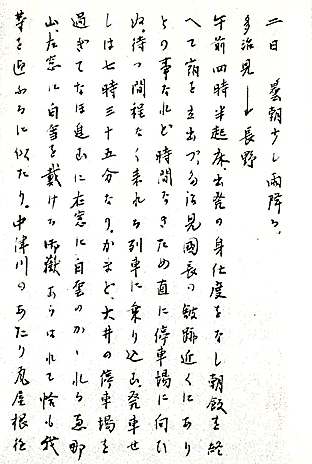 二日 曇朝少し雨降る、
多治見→長野
午前四時半起床、出発の身仕度をなし朝飯を終
へて宿を立出づ、多治見國長の館跡近くにあり
との事なれど時間なきため直に停車場に向ひ
ぬ、待つ間程なく来れる列車に乗り込み、発車せ
しは七時三十五分なり。かまど、大井の停車場を
過ぎてなほ進みに右窓に白雲のかゝれる恵那
山、左窓に白雪を戴ける御嶽あらはれて恰も我
等を迎ふるに似たり。中津川のあたり瓦屋根往